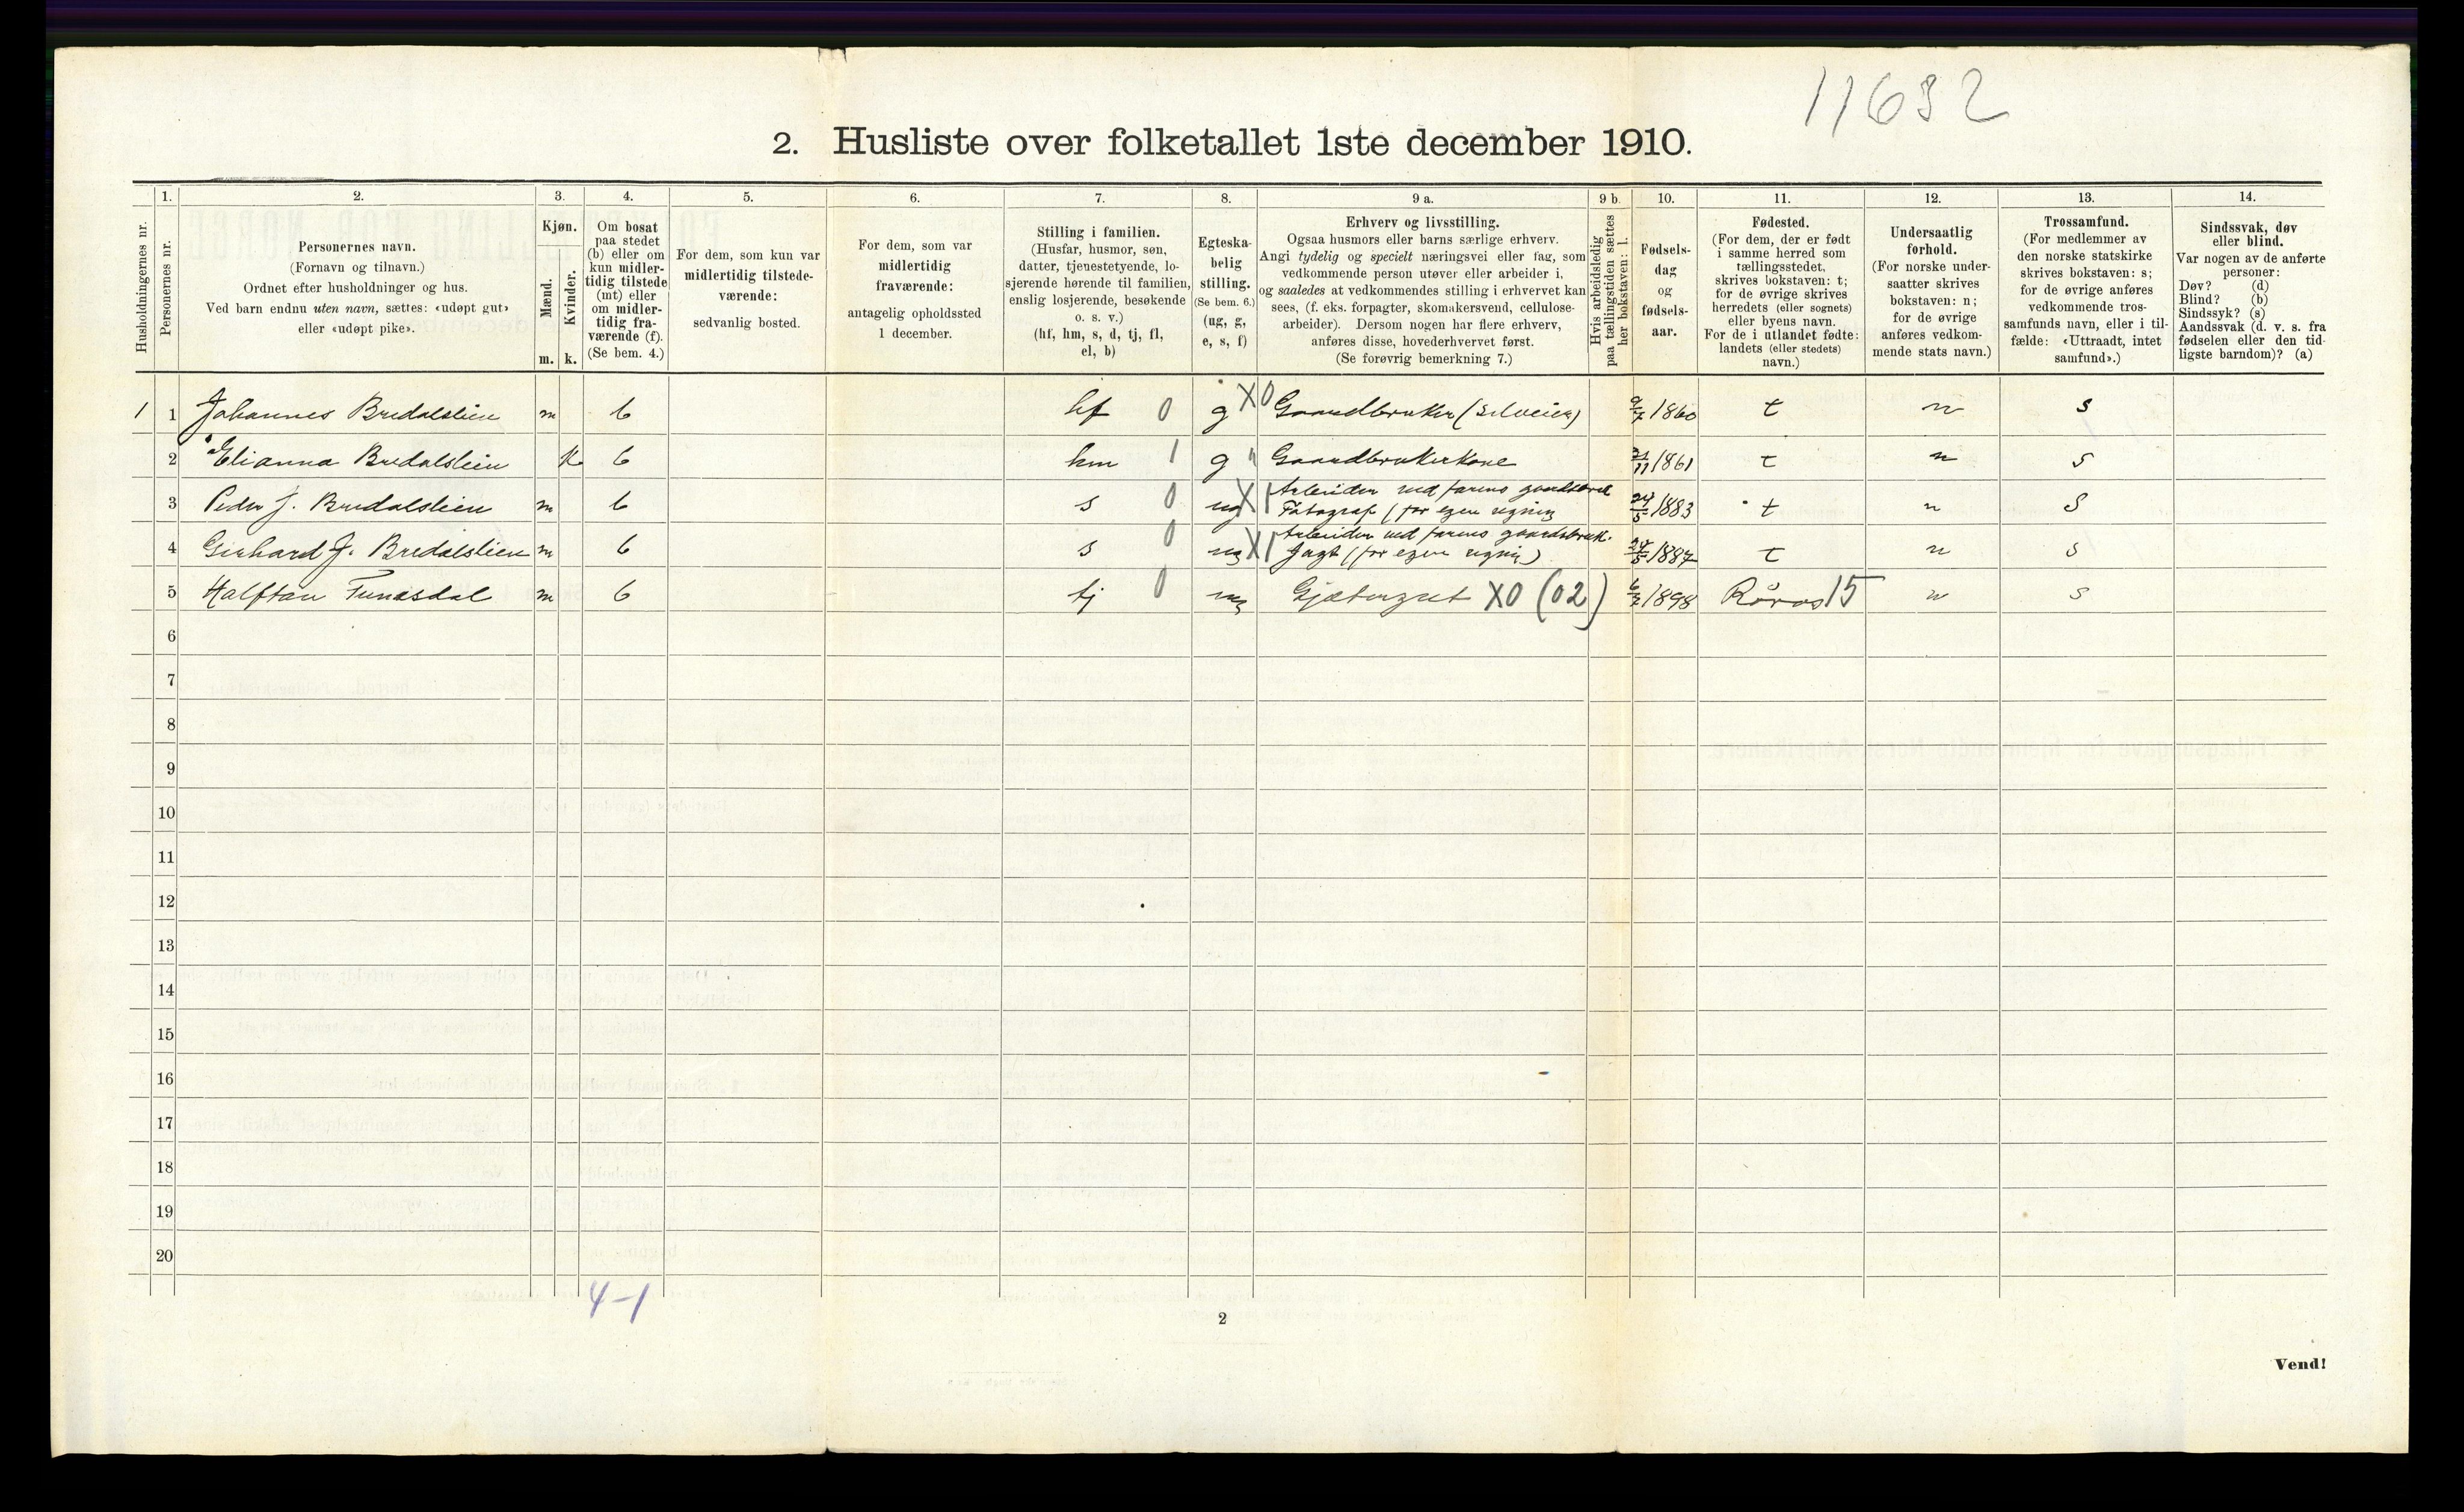 11632
2. Husliste over folketallet 1ste december 1910.
Husholdningernes nr.
1.
Personernes nr.
2.
Personernes navn.
(Fornavn og tilnavn.)
Ordnet efter husholdninger og hus.
Ved barn endnu uten navn, sættes: «udøpt gut»
eller «udøpt pike».
3.
Kjøn.
Mænd.
Kvinder.
m. k.
4.
Om bosat
paa stedet
(b) eller om
kun midler-
tidig tilstede
(mt) eller
om midler-
tidig fra-
værende (f).
(Se bem. 4.)
5.
For dem, som kun var
midlertidig tilstede-
værende:
sedvanlig bosted.
6.
For dem, som var
midlertidig
fraværende:
antagelig opholdssted
1 december.
7.
Stilling i familien.
(Husfar, husmor, søn,
datter, tjenestetyende, lo-
sjerende hørende til familien,
enslig losjerende, besøkende
o. s. v.)
(hf, hm, s, d, tj, fl,
el, b)
8.
Egteska-
belig
stilling.
(Se bem. 6.)
(ug, g,
e, s, f)
9 a.
Erhverv og livsstilling.
Ogsaa husmors eller barns særlige erhverv.
Angi tydelig og specielt næringsvei eller fag, som
vedkommende person utøver eller arbeider i,
og saaledes at vedkommendes stilling i erhvervet kan
sees, (f. eks. forpagter, skomakersvend, cellulose-
arbeider). Dersom nogen har flere erhverv,
anføres disse, hovederhvervet først.
(Se forøvrig bemerkning 7.)
9 b.
Hvis arbeidsledig
paa tællingstiden sættes
her bokstaven: l.
10.
Fødsels-
dag
og
fødsels-
aar.
11.
Fødested.
(For dem, der er født
i samme herred som
tællingsstedet,
skrives bokstaven: t;
for de øvrige skrives
herredets (eller sognets)
eller byens navn.
For de i utlandet fødte:
landets (eller stedets)
navn.)
12.
Undersaatlig
forhold.
(For norske under-
saatter skrives
bokstaven: n;
for de øvrige
anføres vedkom-
mende stats navn.)
13.
Trossamfund.
(For medlemmer av
den norske statskirke
skrives bokstaven: s;
for de øvrige anføres
vedkommende tros-
samfunds navn, eller i til-
fælde: «Uttraadt, intet
samfund».)
14.
Sindssvak, døv
eller blind.
Var nogen av de anførte
personer:
Døv? (d)
Blind? (b)
Sindssyk? (s)
Aandssvak (d. v. s. fra
fødselen eller den tid-
ligste barndom)? (a)
1 1 Johannes Bredalslien m b hf 0 g X0 Gaardbruker (Selveier) 9/7 1860 t n s
2 Elianna Bredalslien k b hm 1 g " Gaardbrukerkone 21/11 1861 t n s
3 Peder J. Bredalslien m b s 0 ug X1 Arbeider ved farens gaardsbruk
Fotograf (for egen regning 24/5 1883 t n s
4 Gerhard J. Bredalslien m b s 0 ug X1 Arbeider ved farens gaardsbruk.
Jagt (for egen regning) 24/5 1887 t n s
5 Halftan Funæsdal m b tj 0 ug Gjætergut X0 (02) 6/2 1898 Röros 15 n s
6
7
8
9
10
11
12
13
14
15
16
17
18
19
20
4-1
2
Vend!